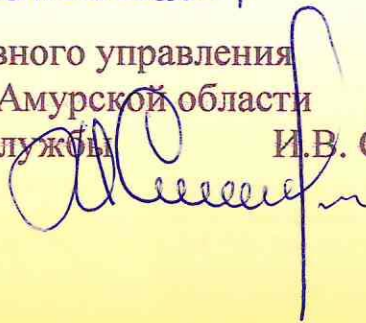 вного управления
Амурской области
лужбы И.В. С